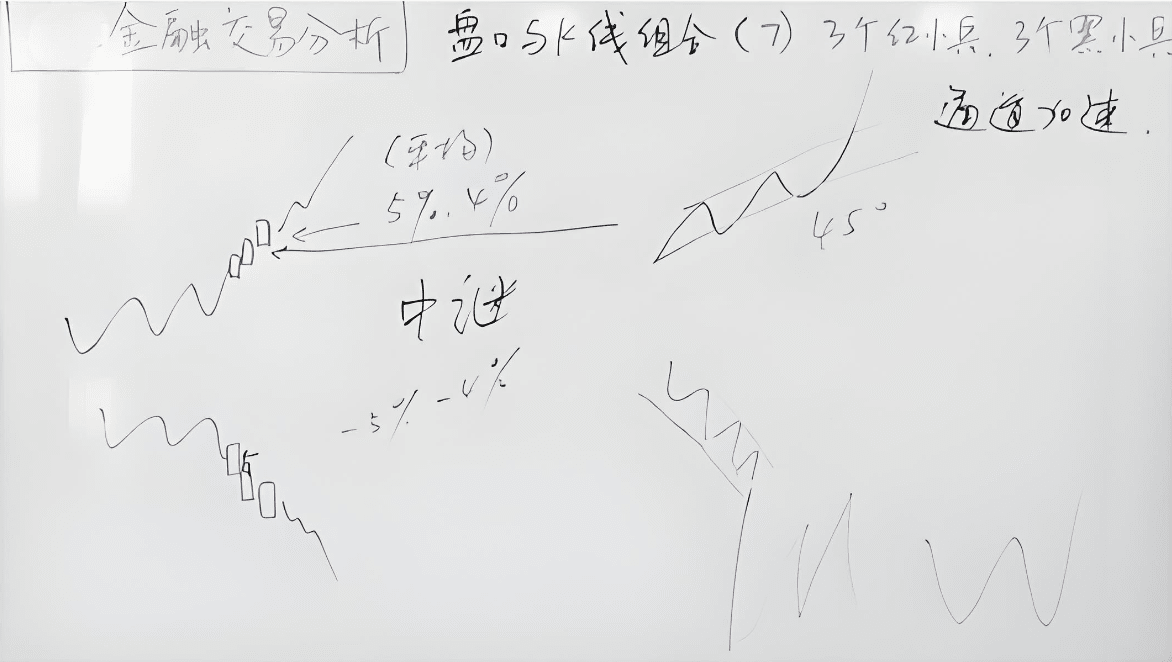 金融交易分析
盘口与K线组合(7) 3个红小兵. 3个黑小兵
通道加速.
(平均)
5%. 4%
45°
中继
-5% -4%